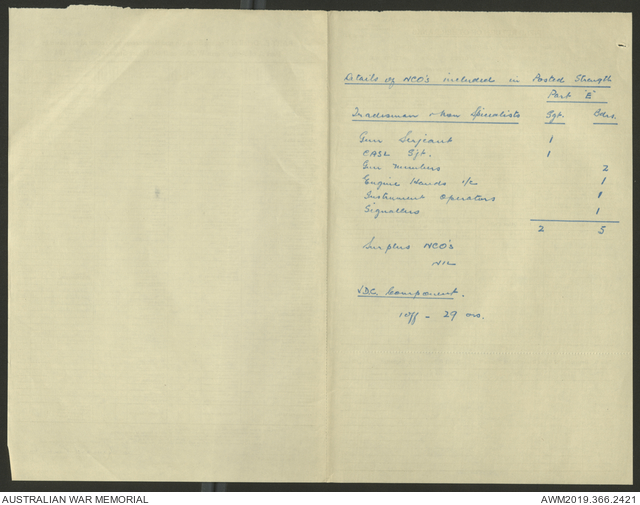 Details of NCO's included in Posted Strength
Part "E"
Tradesman & Non Specialists Sgt. Bdrs.
Gun Serjeant 1
CASL Sgt. 1
Gun numbers 2
Engine Hands i/c 1
Instrument Operators 1
Signallers 1
2 5
Surplus NCO's
Nil
V.D.C. Component.
1 off - 29 ors.
AUSTRALIAN WAR MEMORIAL
AWM2019.366.2421